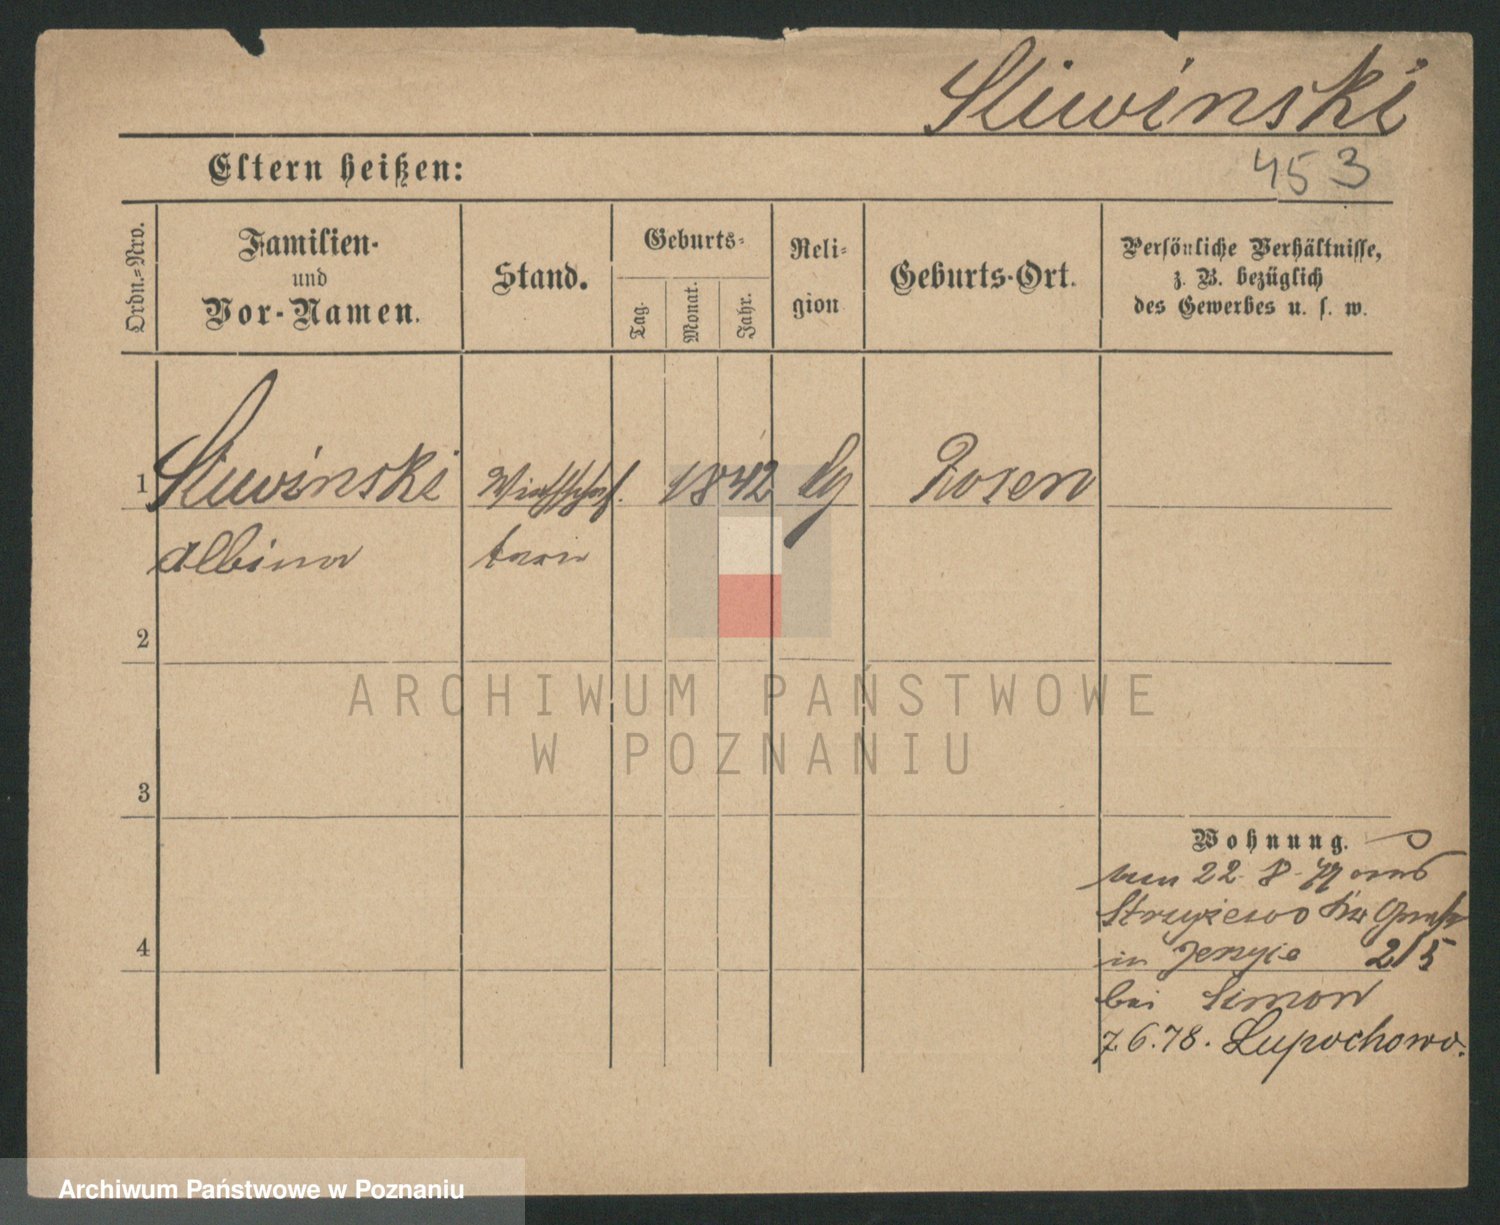 Sliwinski
Eltern heißen:
453
Ordn.-Nro.
Familien-
und
Vor-Namen.
Stand.
Geburts-
Tag.
Monat.
Jahr.
Reli-
gion
Geburts-Ort.
Persönliche Verhältnisse,
z. B. bezüglich
des Gewerbes u. s. w.
1 Sliwinski Wirthschaf. 1842 Posen
Albina terin
2
ARCHIWUM PAŃSTWOWE
W POZNANIU
3
Wohnung.
22. 8. 77 aus
Struzewo
in Jerzyce 215
bei Simon
7.6.78. Lupochowo.
4
Archiwum Państwowe w Poznaniu